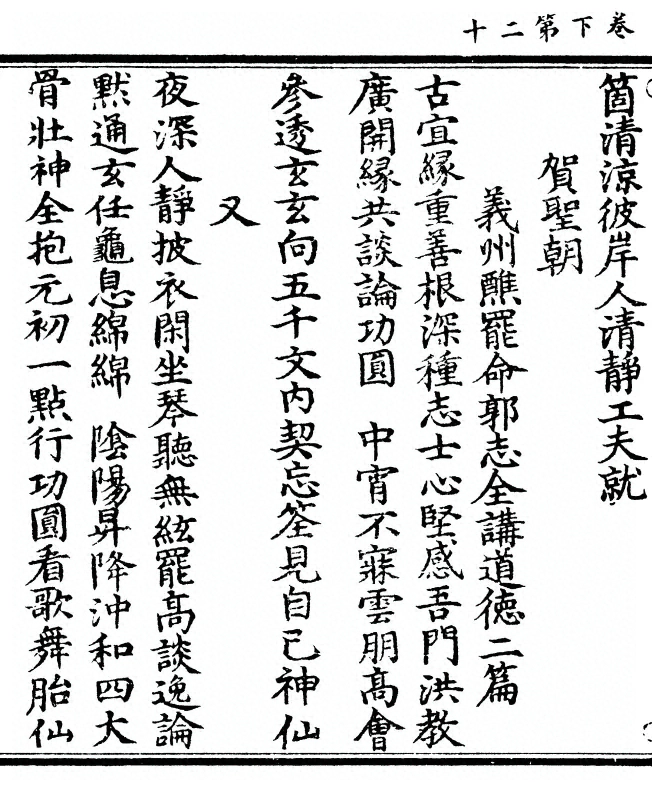 卷下第二十
箇清涼彼岸人清靜工夫就
賀聖朝
義州醮罷命郭志全講道德二篇
古宜緣重善根深種志士心堅感吾門洪教
廣開緣共談論功圓　中宵不寐雲朋高會
參透玄玄向五千文内契忘筌見自己神仙
又
夜深人靜披衣閑坐琴聽無絃罷高談逸論
默通玄任龜息綿綿　陰陽昇降沖和四大
骨壯神全抱元初一點行功圓看歌舞胎仙